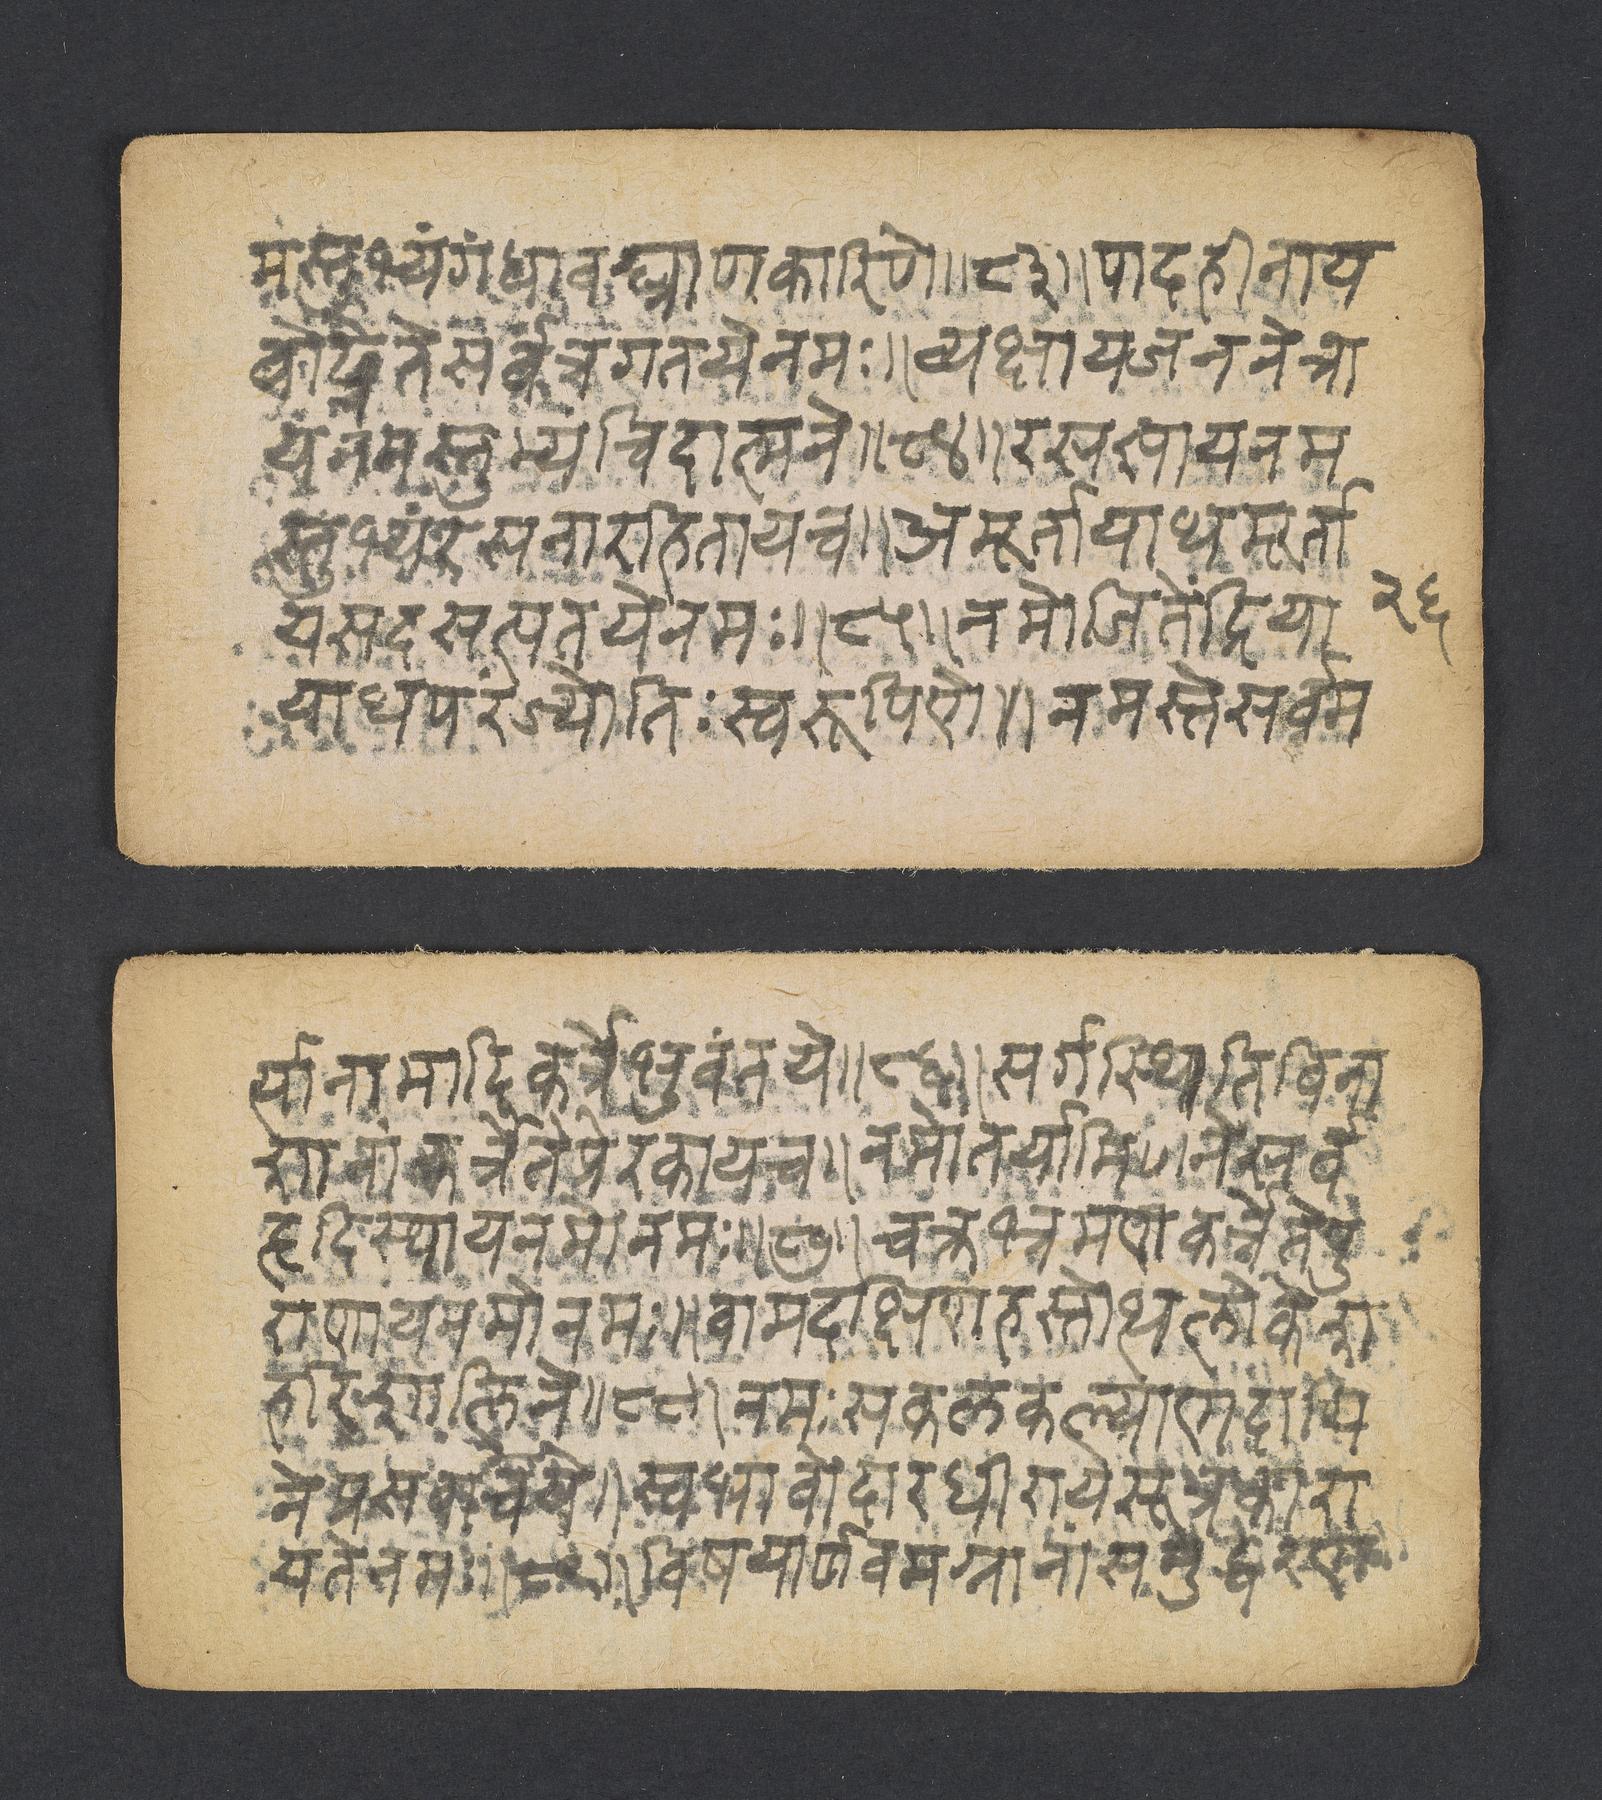 मस्तुभ्यंगंधावघ्राणकारिणे॥८३॥पादहीनाय
तेसर्वत्रगतयेनमः॥व्यक्षायजननेत्रा
यनमस्तुभ्यंचिदात्मने॥८४॥रसरूपायनम
स्तुभ्यंरसनारहितायच॥अमूर्तायाथमूर्ता
यसदसत्पतयेनमः॥८५॥नमोजितेंद्रिया
२६
याथपरंज्योतिःस्वरूपिणे॥नमस्तेसर्वम
र्त्यानामादिकर्त्रेभुवंतये॥८६॥सर्गस्थितिविना
शानांकर्त्रेतेप्रेरकायच॥नमोंतर्यामिणेसर्व
हृदिस्थायनमोनमः॥८७॥चक्रभ्रमणकर्त्रेतेपु
राणायनमोनमः॥वामदक्षिणहस्तोत्थलोकेशा
हरिशूलिने॥८८॥नमःसकलकल्याणदायि
नेप्रसवायते॥स्वभावोदारधीरायसूत्रकारा
यतेनमः॥८९॥विषयार्णवमग्नानांसमुद्धरण